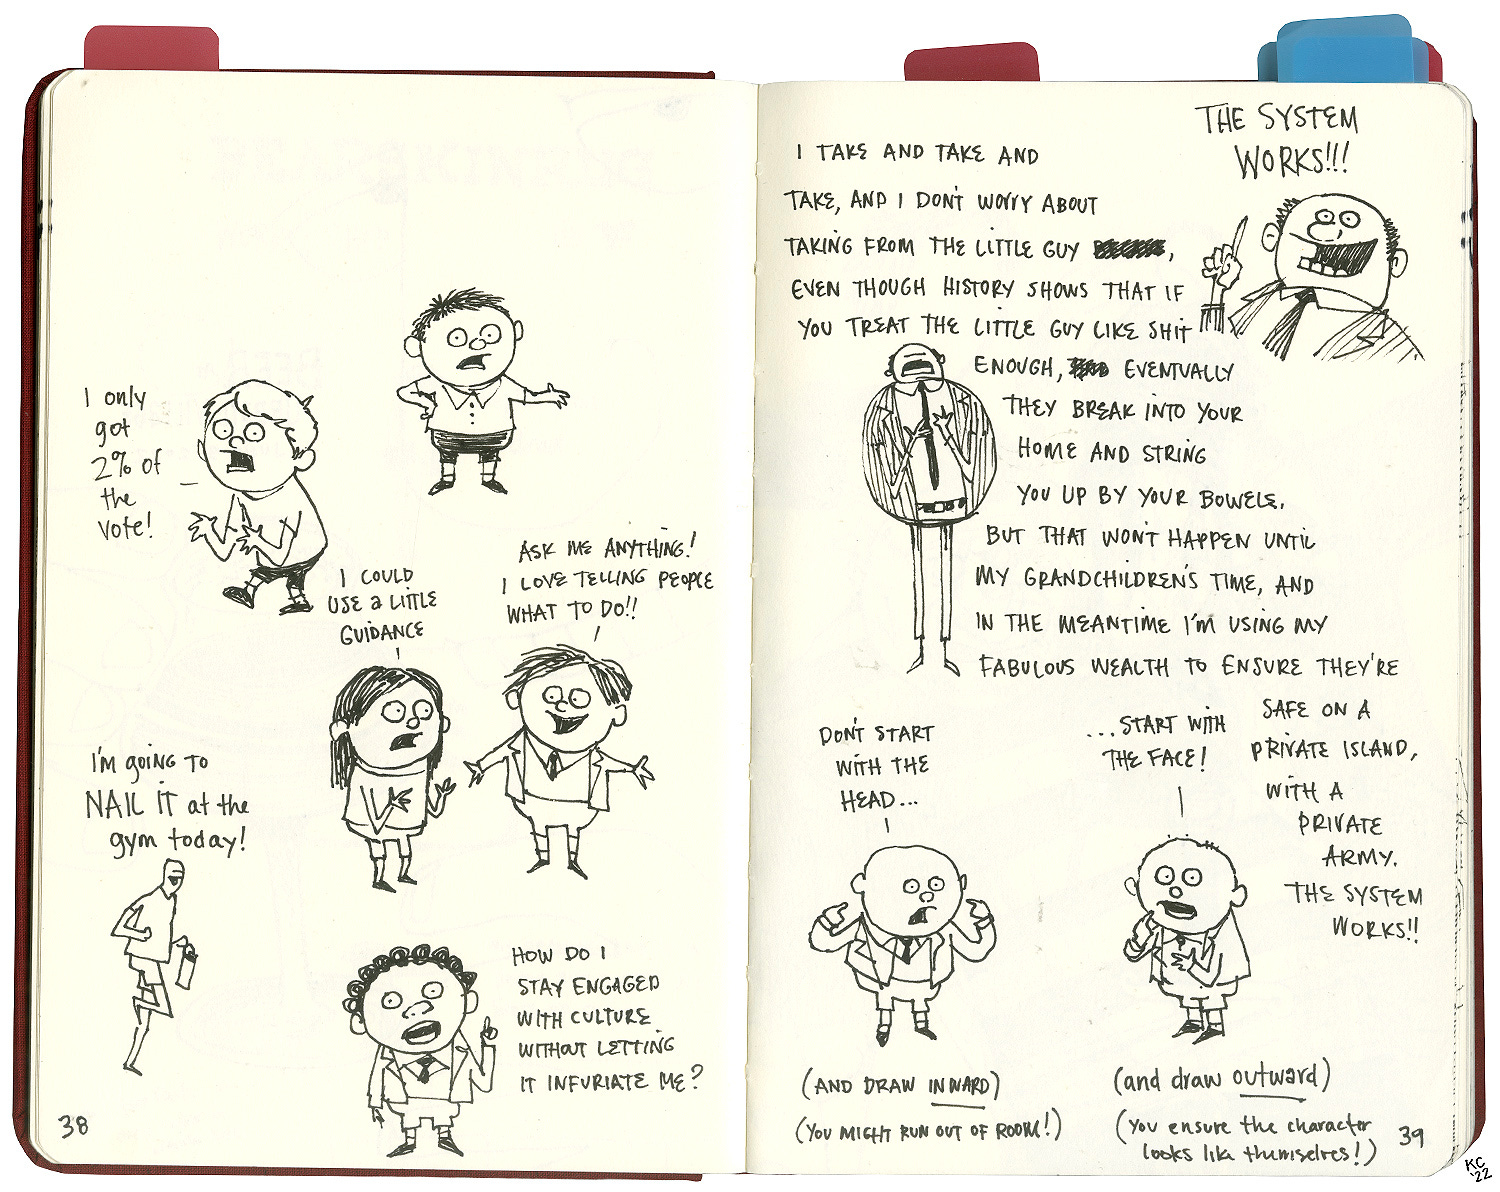 I only
got
2% of
the
vote!
I COULD
USE a LITTLE
GUIDANCE
ASK ME ANYTHING!
I LOVE TELLING PEOPLE
WHAT TO DO!!
I'm going to
NAIL IT at the
gym today!
HOW DO I
STAY ENGAGED
WITH CULTURE
WITHOUT LETTING
IT INFURIATE ME?
38
THE SYSTEM
WORKS!!!
I TAKE AND TAKE AND
TAKE, AND I DON'T WORRY ABOUT
TAKING FROM THE LITTLE GUY ,
EVEN THOUGH HISTORY SHOWS THAT IF
YOU TREAT THE LITTLE GUY LIKE SHIT
ENOUGH, EVENTUALLY
THEY BREAK INTO YOUR
HOME AND STRING
YOU UP BY YOUR BOWELS.
BUT THAT WON'T HAPPEN UNTIL
MY GRANDCHILDREN'S TIME, AND
IN THE MEANTIME I'M USING MY
FABULOUS WEALTH TO ENSURE THEY'RE
SAFE ON A
PRIVATE ISLAND,
WITH A
PRIVATE
ARMY.
THE SYSTEM
WORKS!!
DON'T START
WITH THE
HEAD...
...START WITH
THE FACE!
(AND DRAW INWARD)
(YOU MIGHT RUN OUT OF ROOM!)
(and draw outward)
(You ensure the character
looks like themselves!)
39
KC
'22